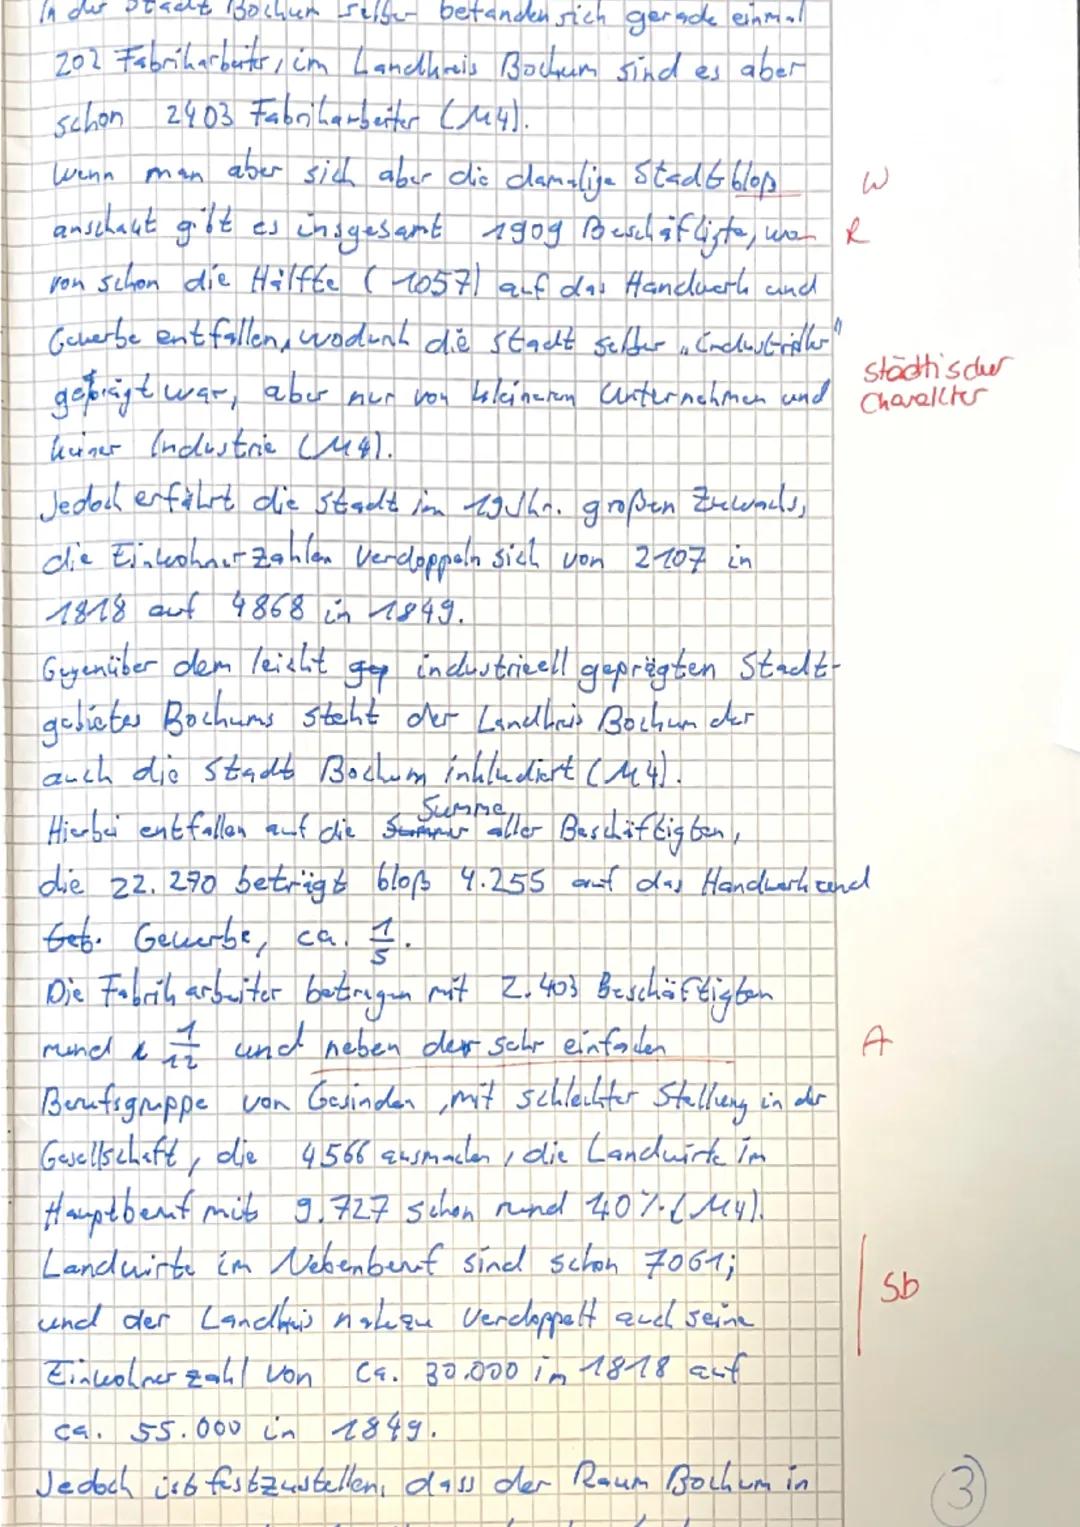 In der Stadt Bochum selber befanden sich gerade einmal
202 Fabrikarbeiter, im Landkreis Bochum sind es aber
schon 2403 Fabrikarbeiter (M4).
Wenn man aber sich aber die damalige Stadt bloß W
anschaut gibt es insgesamt 1909 Beschäftigte, wo- R
von schon die Hälfte (1057) auf das Handwerk und
Gewerbe entfallen, wodurch die Stadt selber „industriell"
geprägt war, aber nur von kleineren Unternehmen und
städtischer
Charakter
keiner Industrie (M4).
Jedoch erfährt die Stadt im 19 Jhr. großen Zuwachs,
die Einwohnerzahlen verdoppeln sich von 2107 in
1818 auf 4868 in 1849.
Gegenüber dem leicht gep industrieell geprägten Stadt-
gebietes Bochums steht der Landkreis Bochum der
auch die Stadt Bochum inkludiert (M4).
Hierbei entfallen auf die Summe aller Beschäftigten,
die 22.270 beträgt bloß 4.255 auf das Handwerk und
Gewerbe, ca. 1/5.
Die Fabrikarbeiter betragen mit 2.403 Beschäftigten
rund 1/12 und neben der sehr einfachen A
Berufsgruppe von Gesinden, mit schlechter Stellung in der
Gesellschaft, die 4566 ausmachen, die Landwirte im
Hauptberuf mit 9.727 schon rund 40% (M4).
Landwirte im Nebenberuf sind schon 7061;
Sb
und der Landkreis nahezu verdoppelt auch seine
Einwohnerzahl von ca. 30.000 in 1818 auf
ca. 55.000 in 1849.
Jedoch ist festzustellen, dass der Raum Bochum in
3